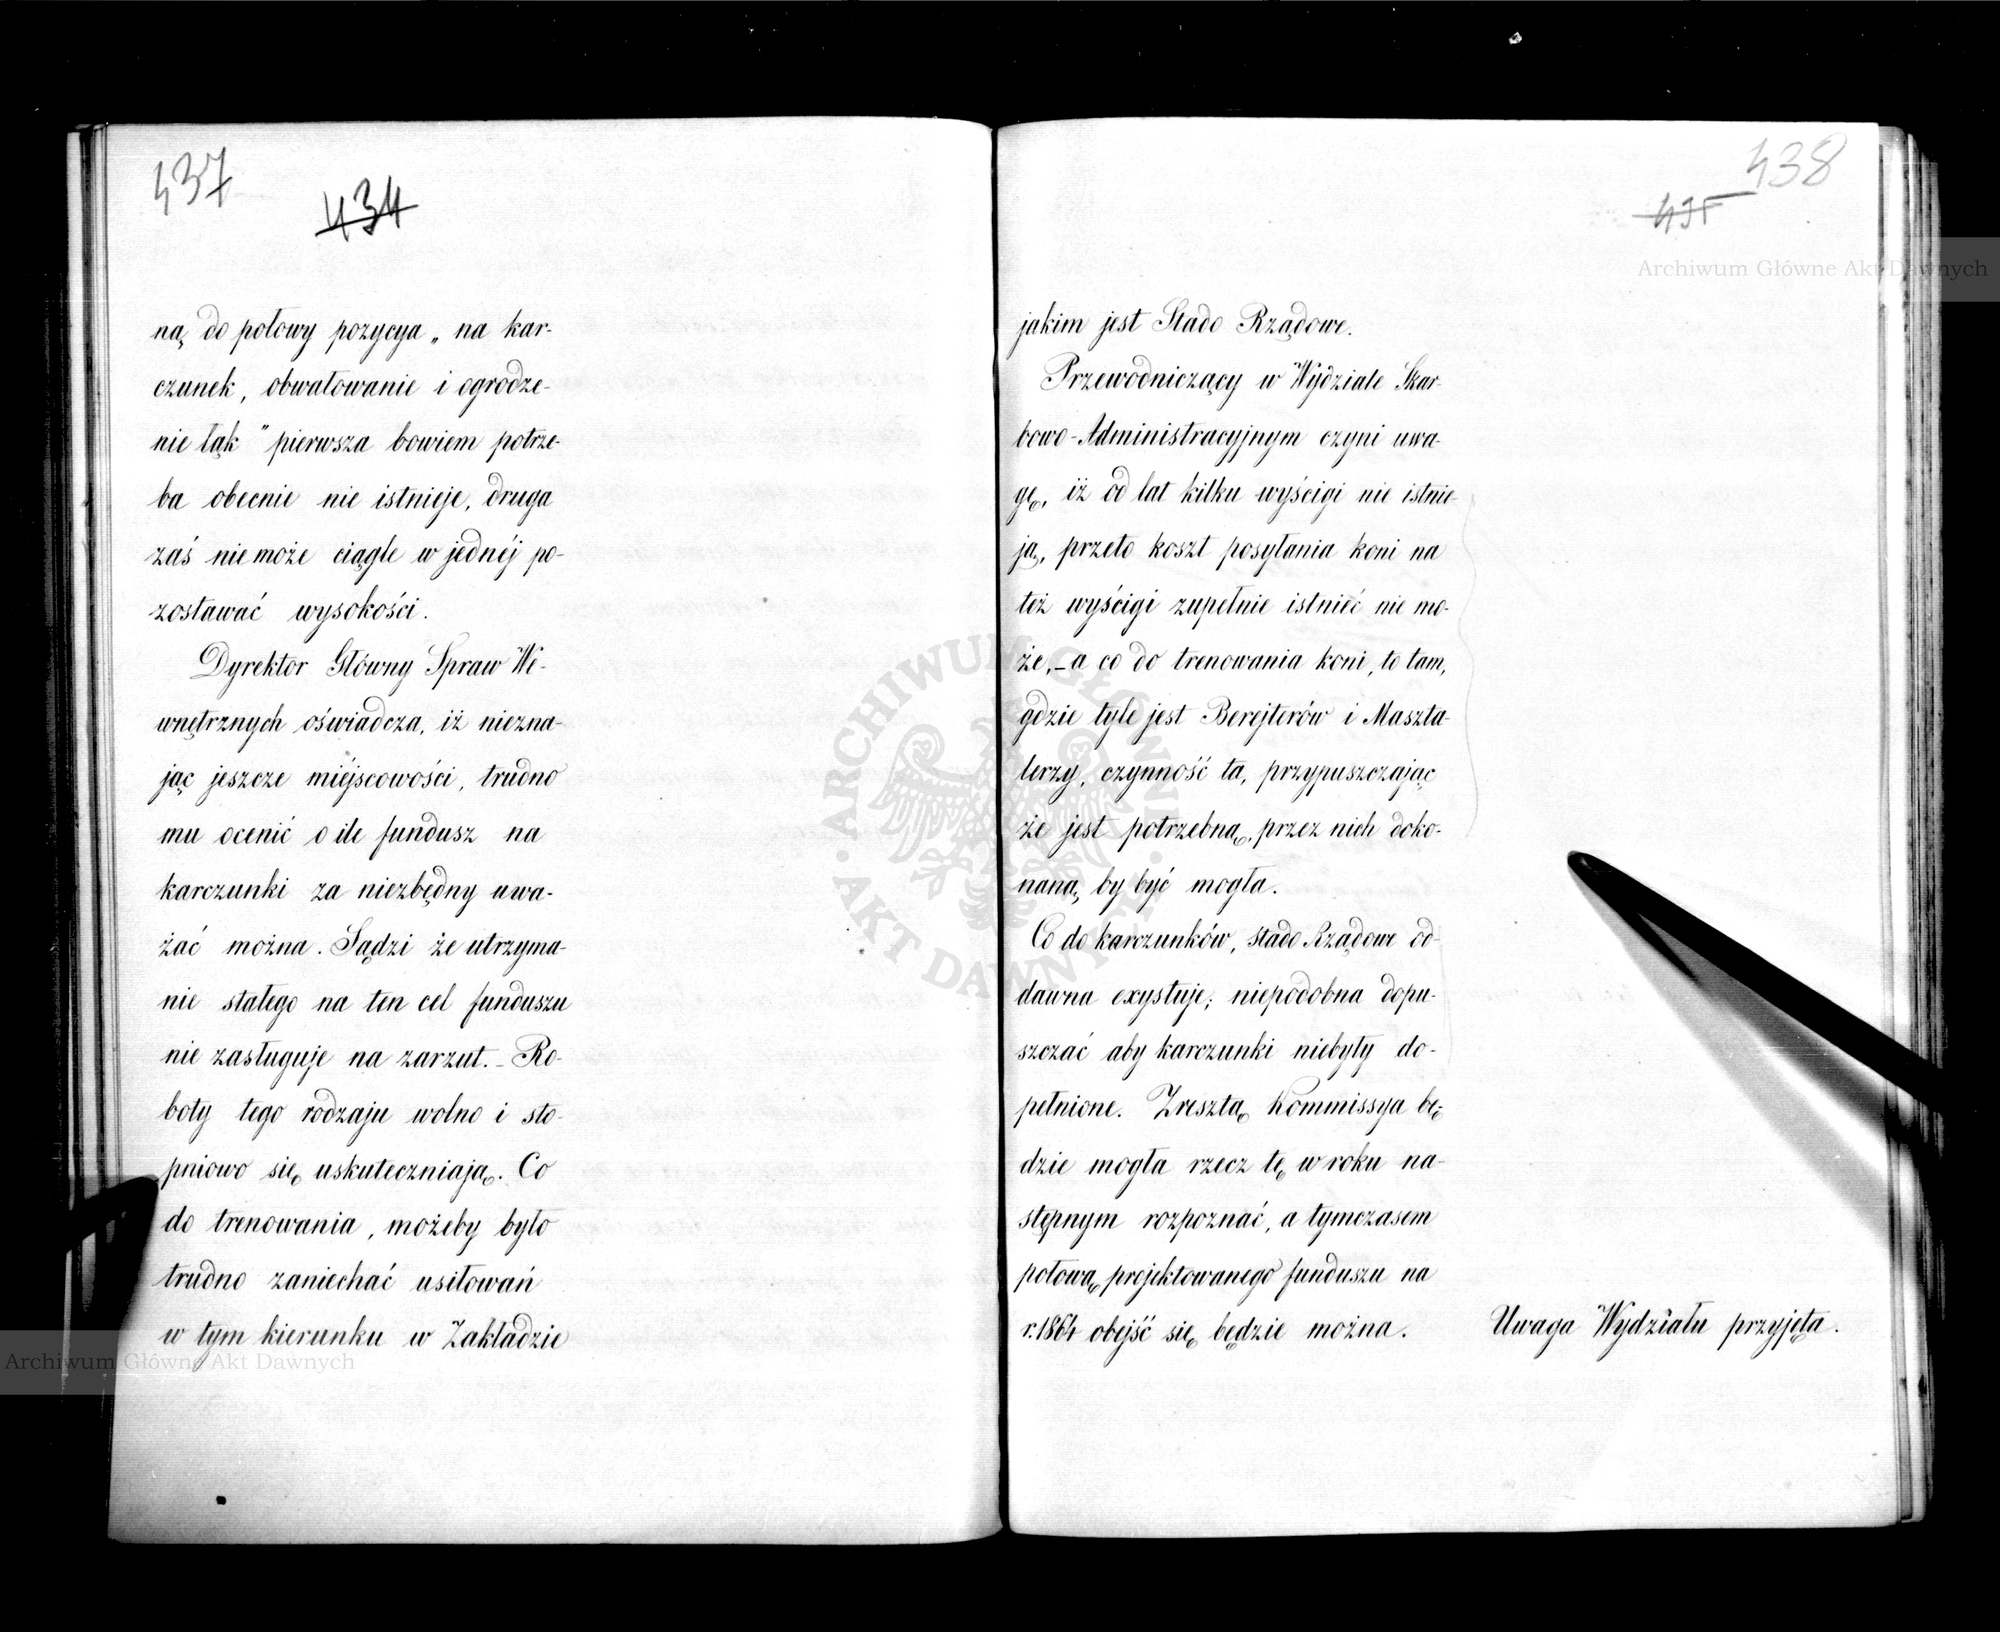 437
434
ną do połowy pozycya „na kar-
czunek, obwałowanie i ogrodze-
nie łąk" pierwsza bowiem potrze-
ba obecnie nie istnieje, druga
zaś nie może ciągle w jednéj po-
zostawać wysokości.
Dyrektor Główny Spraw We-
wnętrznych oświadcza, iż niezna-
jąc jeszcze miéjscowości, trudno
mu ocenić o ile fundusz na
karczunki za niezbędny uwa-
żać można. Sądzi że utrzyma-
nie stałego na ten cel funduszu
nie zasługuje na zarzut. – Ro-
boty tego rodzaju wolno i sto-
pniowo się uskuteczniają. Co
do trenowania, możeby było
trudno zaniechać usiłowań
w tym kierunku w Zakładzie
438
435
jakim jest Stado Rządowe.
Przewodniczący w Wydziale Skar-
bowo-Administracyjnym czyni uwa-
gę, iż od lat kilku wyścigi nie istnie-
ją, przeto koszt posyłania koni na
też wyścigi zupełnie istnieć nie mo-
że, – a co do trenowania koni, to tam,
gdzie tyle jest Berejterów i Maszta-
lerzy, czynność ta, przypuszczając
że jest potrzebną, przez nich doko-
naną by być mogła.
Co do karczunków, stado Rządowe od-
dawna exystuje; niepodobna dopu-
szczać aby karczunki niebyły do-
pełnione. Zresztą Kommissya bę-
dzie mogła rzecz tę w roku na-
stępnym rozpoznać, a tymczasem
połową projektowanego funduszu na
r. 1864 obejść się będzie można.
Uwaga Wydziału przyjęta.
Archiwum Główne Akt Dawnych
ARCHIWUM GŁÓWNE AKT DAWNYCH
Archiwum Główne Akt Dawnych